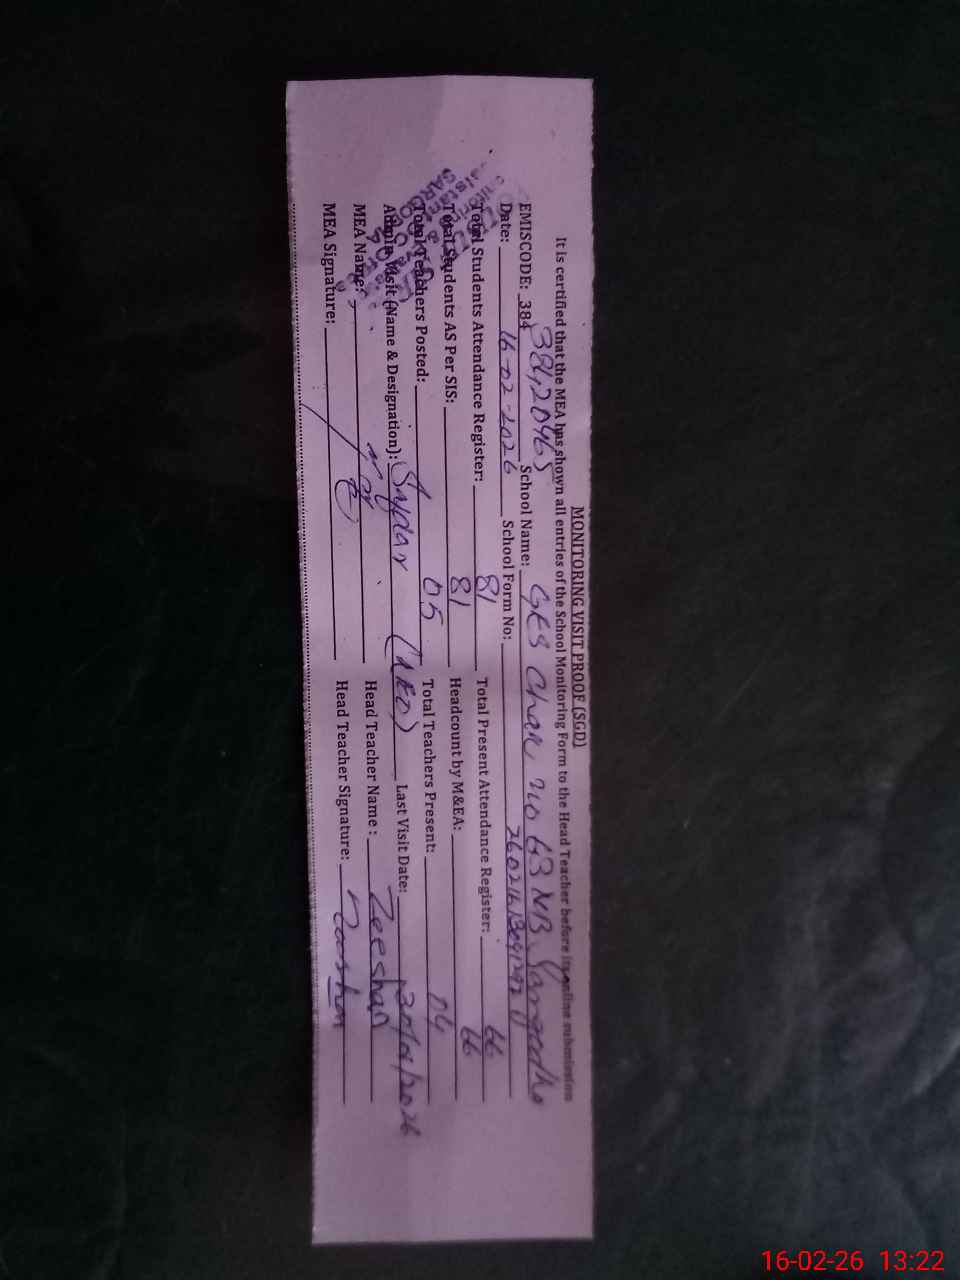 MONITORING VISIT PROOF (SGD)
It is certified that the MEA has shown all entries of the School Monitoring Form to the Head Teacher before its online submission
EMISCODE: 384 38420465 School Name: GES Chak no 63 NB Sargodha
Date: 16-02-2026 School Form No:
Total Students Attendance Register: 81 Total Present Attendance Register: 66
Total Students AS Per SIS: 81 Headcount by M&EA: 66
Total Teachers Posted: 05 Total Teachers Present: 04
Admin Visit (Name & Designation): (AEO) Last Visit Date: 30/01/2026
MEA Name: Head Teacher Name : Zeeshan
MEA Signature: Head Teacher Signature: Zeeshan
16-02-26 13:22